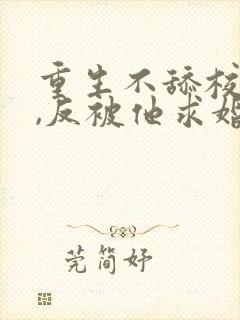 重生不舔校
,反被他求婚
莞简妤